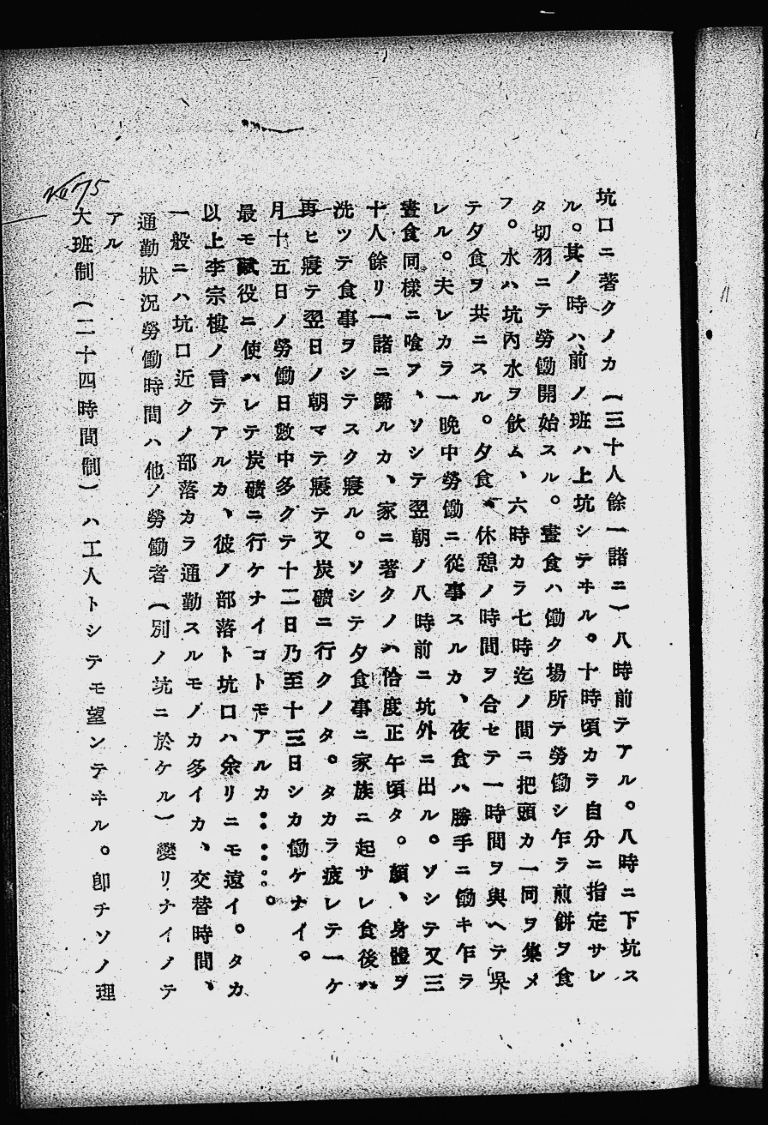 坑口ニ著クノカ(三十人餘一諸ニ)八時前テアル。八時ニ下坑ス
ル。其ノ時ハ、前ノ班ハ上坑シテヰル。十時頃カラ自分ニ指定サレ
タ切羽ニテ勞働開始スル。晝食ハ働ク場所テ勞働シ乍ラ煎餅ヲ食
フ。水ハ坑內水ヲ飲ム、六時カラ七時迄ノ間ニ把頭カ一同ヲ集メ
テ夕食ヲ共ニスル。夕食、休憩ノ時間ヲ合セテ一時間ヲ與ヘテ吳
レル。夫レカラ一晩中勞働ニ從事スルカ、夜食ハ勝手ニ働キ乍ラ
晝食同樣ニ喰フ、ソシテ翌朝ノ八時前ニ坑外ニ出ル。ソシテ又三
十人餘リ一諸ニ歸ルカ、家ニ著クノハ恰度正午頃タ。顏、身體ヲ
洗ツテ食事ヲシテスク寢ル。ソシテ夕食事ニ家族ニ起サレ食後ハ
再ヒ寢テ翌日ノ朝マテ寢テ又炭礦ニ行クノタ。タカラ疲レテ一ケ
月十五日ノ勞働日數中多クテ十二日乃至十三日シカ働ケナイ。
最モ賦役ニ使ハレテ炭礦ニ行ケナイコトモアルカ・・・・。
以上李宗樓ノ言テアルカ、彼ノ部落ト坑口ハ余リニモ遠イ。タカ
一般ニハ坑口近クノ部落カラ通勤スルモノカ多イカ、交替時間、
通勤狀況勞働時間ハ他ノ勞働者(別ノ坑ニ於ケル)變リナイノテ
アル
No 75
大班制(二十四時間制)ハ工人トシテモ望ンテヰル。卽チソノ理